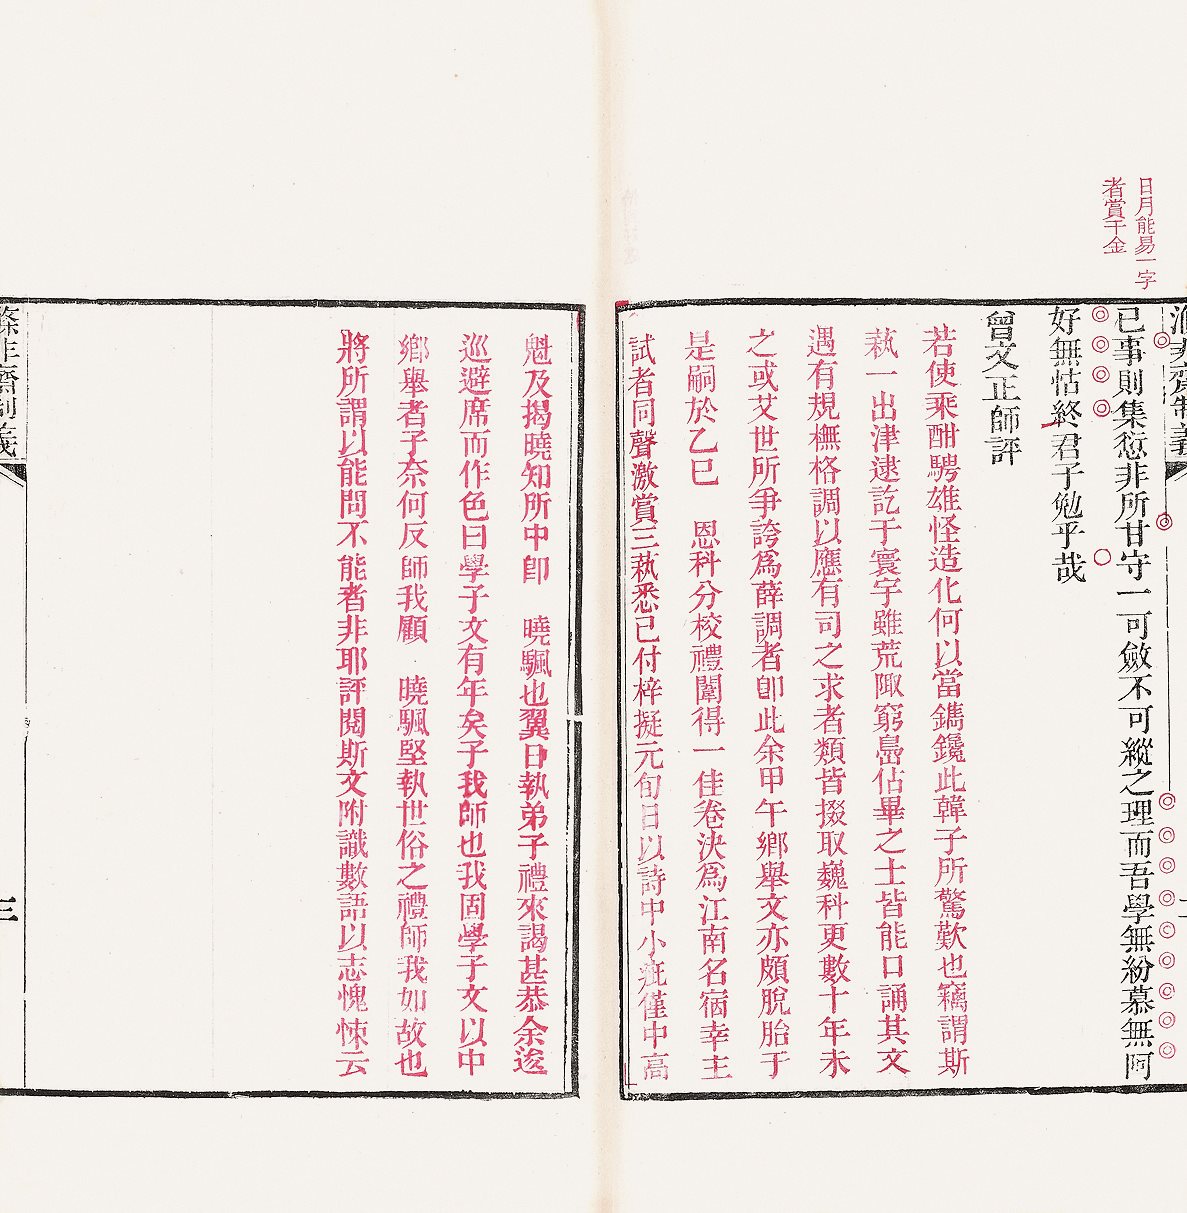 日月能易一字
者賞千金
已事則集愆非所甘守一可斂不可縱之理而吾學無紛慕無阿
好無怙終君子勉乎哉
曾文正師評
若使乘酣騁雄怪造化何以當鐫鑱此韓子所驚歎也竊謂斯
蓺一出津逮訖于寰宇雖荒陬窮嵒佔畢之士皆能口誦其文
遇有規橅格調以應有司之求者類皆掇取巍科更數十年未
之或艾世所爭誇爲薛調者卽此余甲午鄉舉文亦頗脫胎于
是嗣於乙巳　恩科分校禮闈得一佳卷決爲江南名宿幸主
試者同聲激賞三蓺悉已付梓擬元旬日以詩中小疵僅中高
魁及揭曉知所中卽　曉颿也翼日執弟子禮來謁甚恭余逡
巡避席而作色曰學子文有年矣子我師也我固學子文以中
鄉舉者子奈何反師我顧　曉颿堅執世俗之禮師我如故也
將所謂以能問不能者非耶評閱斯文附識數語以志愧悚云
三